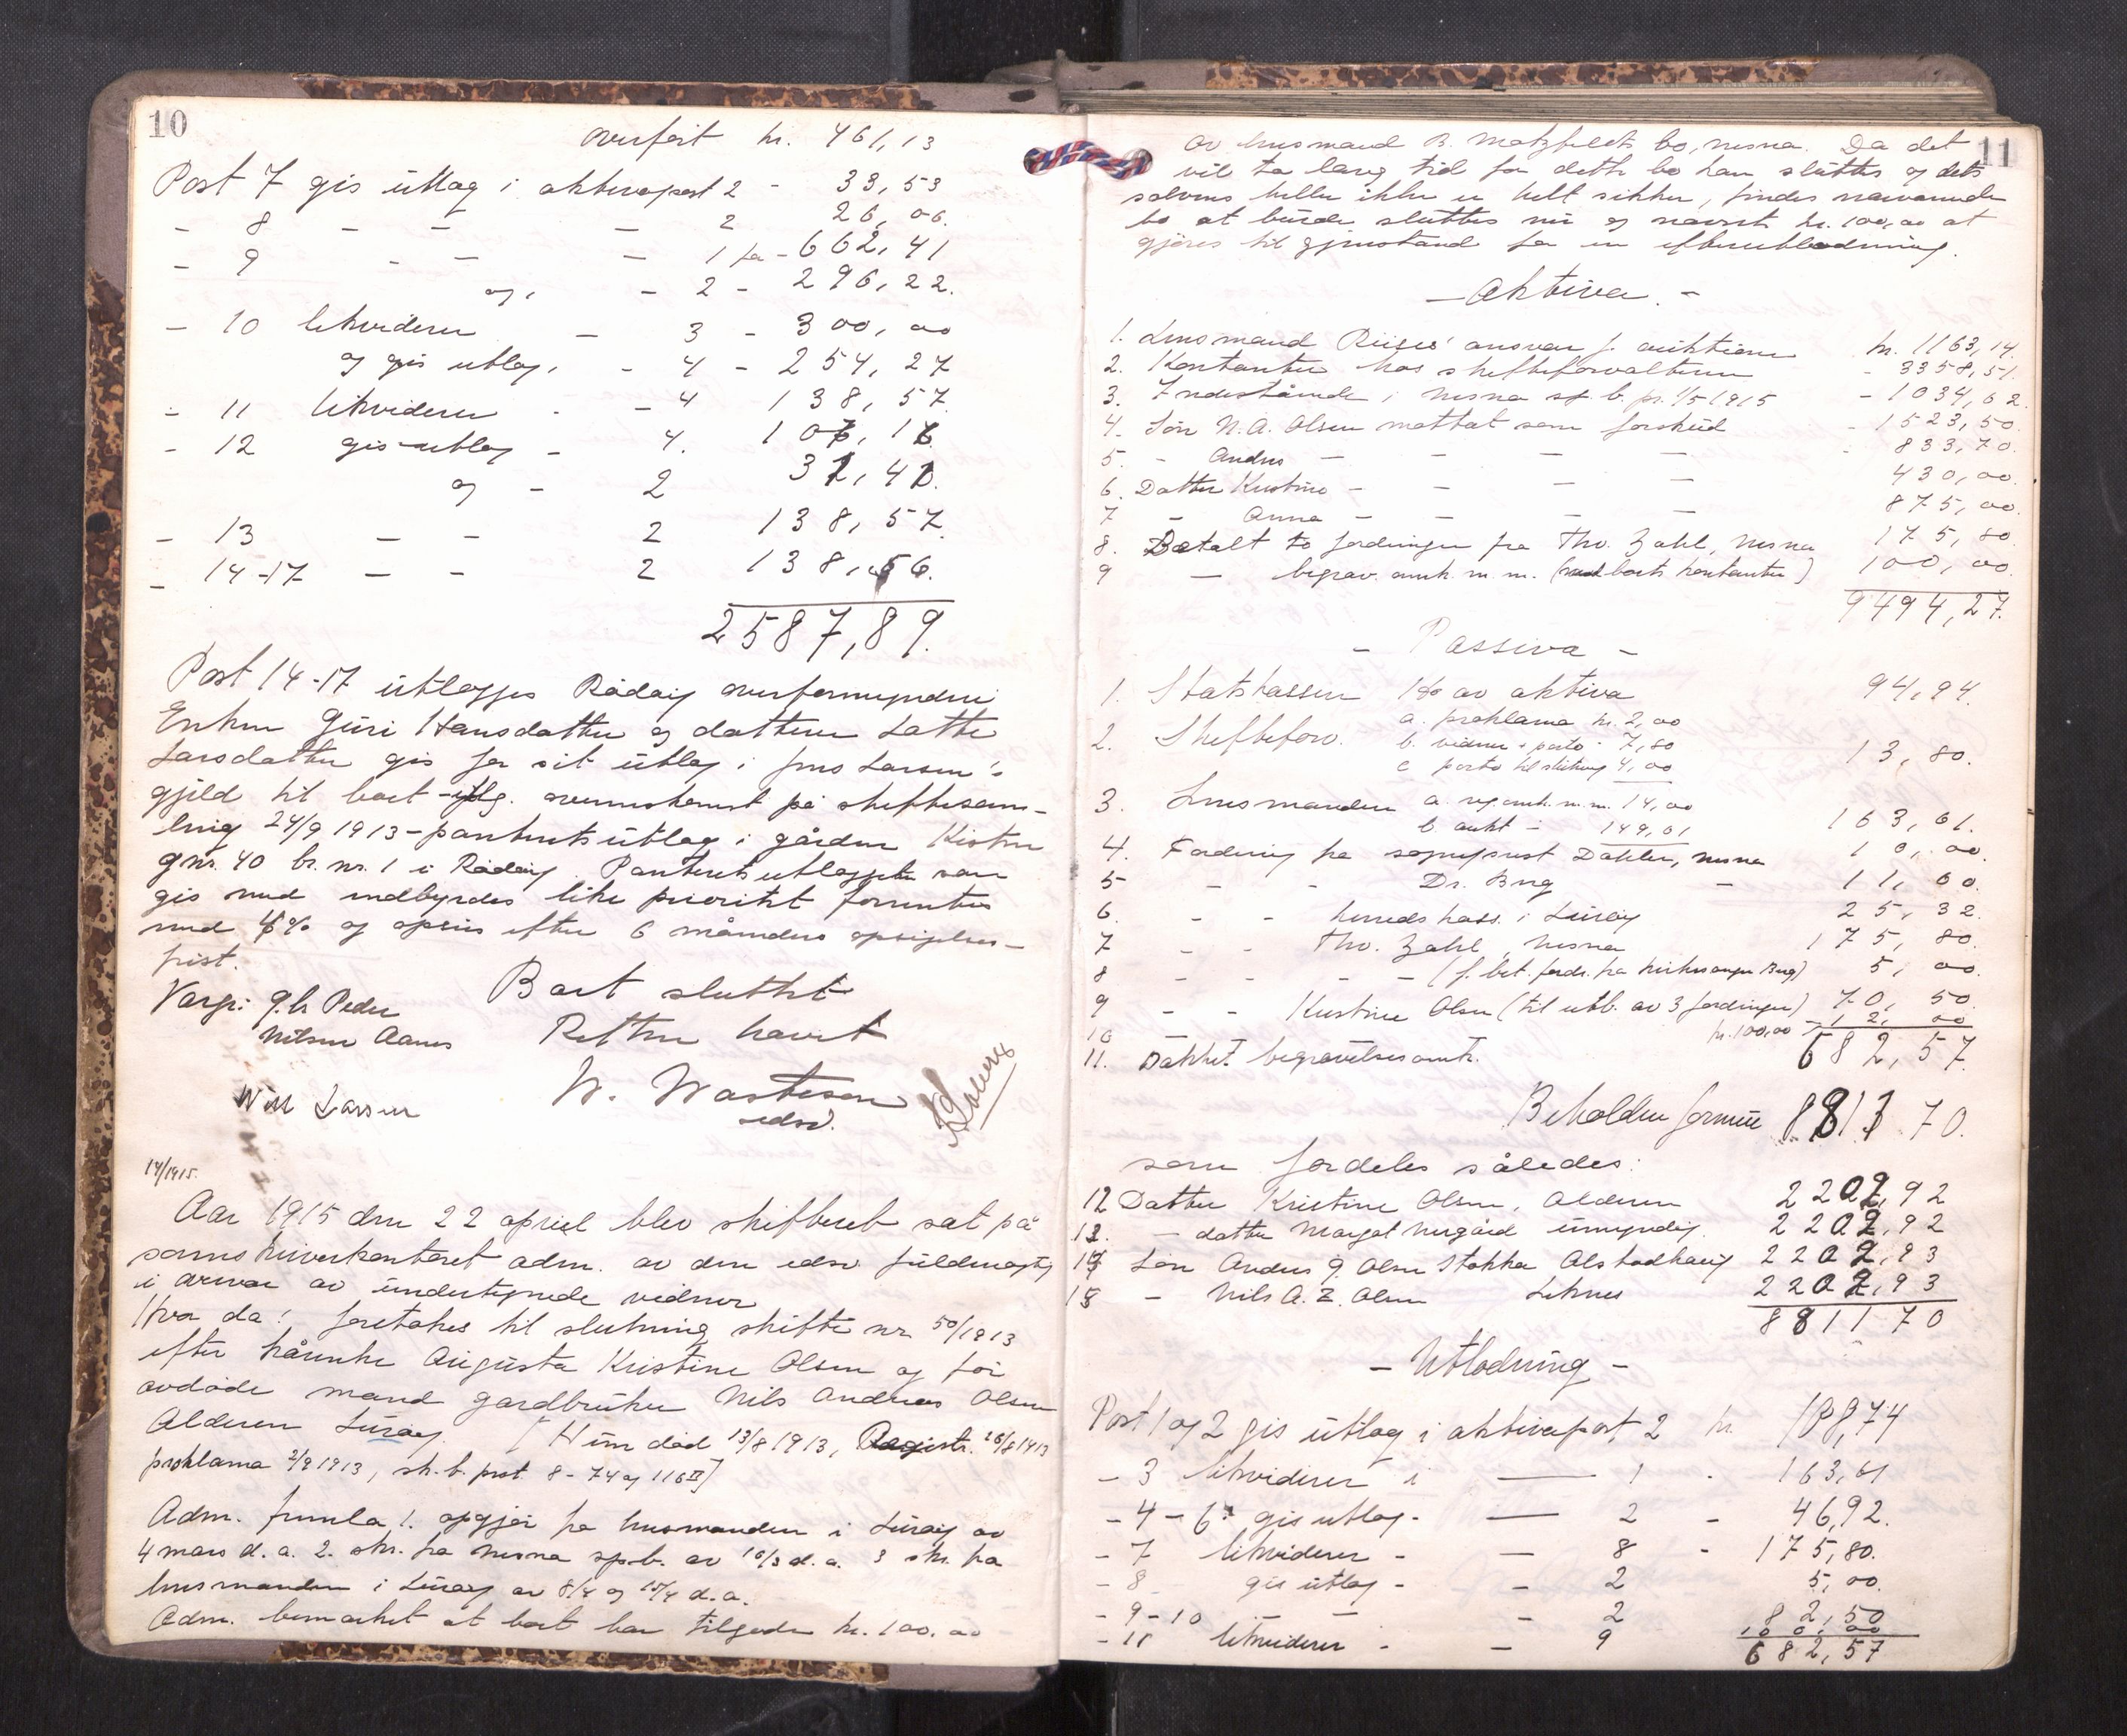 10
overført kr. 461,13
Post 7 gis utlæg i aktivapost 2 - 33,53
- 8 - - - 2 26,06.
- 9 - - - 1 fra - 662,41
og i - 2 - 296,22.
- 10 likviderer - 3 - 300,00
og gis utlæg i - 4 - 254,27
- 11 likviderer - - 4 138,57
- 12 gis utlæg - 4. 107,16
og - 2 31,41.
- 13 - - 2 138,57
- 14-17 - - 2 138,56.
2587,89.
Post 14-17 utlægges Rødøy overformynderi
Enken Guri Hansdatter og datteren Lotte
Larsdatter gis for sit utlæg i Jens Larsen's
gjæld til boet - ifølg. overenskomst på skiftesam-
ling 24/9 1913 - panterets utlæg i gården Kistrn
gnr. 40 br. nr. 1 i Rødøy. Panteretsutlæggene
gis med indbyrdes like prioritet forrentes
med 4% og opsies efter 6 måneders opsigelses-
frist.
Boet sluttet
Verge: g.br Peder
Nilsen Aanes
Retten hævet
W. Wastesen
edsv.
Will Larsen
14/1915.
Aar 1915 den 22 april blev skifteret sat på
sorenskriverkontoret adm. av den edsv. fuldmægtig
i nærvær av undertegnede vidner
Hvor da: foretokes til slutning skifte nr 50/1913
efter kårenke Augusta Kristine Olsen og før
avdøde mand gardbruker Nils Andreas Olsen
Alderen Lurøy. [Hun død 13/8 1913, Registr. 26/8 1913
proklama 2/9 1913, sk. b. prot. 8 - 74 og 116 II]
Adm. fremla 1. opgjør fra lensmanden i Lurøy av
4 mars d.a. 2. skr. fra Nesna sp.b. av 16/3 d.a. 3 skr. fra
lensmanden i Lurøy av 8/4 og 15/4 d.a.
Adm. bemærket at boet har tilgode kr. 100.00
11
av lensmand B. Motzfeldts bo, Nesna. Da det
vil ta lang tid før dette bo kan sluttes og dets
solvens heller ikke er helt sikker, findes nærværende
bo at burde sluttes nu og nævnte kr. 100,00 at
gjøres til gjenstand for en efterutlodning.
- Aktiva. -
1. Lensmand Riises' ansvar f. auktionen kr. 1163,14.
2. Kontanter hos skifteforvalteren - 3358,51.
3. Indestående i Nesna sp. b. pr. 1/5 1915 - 1034,62.
4. Søn N.A. Olsen mottat som forskud - 1523,50.
5. - Andrus - - - - 833,70.
6. Datter Kristine - - - - 430,00.
7 - Anna - - - - 875,00.
8. Betalt to fordringer fra Thv. Zahl, Nesna 175,80.
9 - begrav. omk. m. m. (med boets kontanter) 100,00
9494,27.
- Passiva -
1. Statskassen 1% av aktiva 94,94.
2. Skifteforv. a. proklama kr. 2,00
b. vidner + porto - 7,80
c porto til slutning 4,00
13,80.
3. Lensmanden a. reg.omk. m.m. 14,00
b aukt - 149,61
163,61.
4. Fordring fra sogneprest Dahler, Nesna 10,00.
5 - - Dr. Berg - 11,60.
6. - - herredskass. i Lurøy 25,32.
7 - - Thv. Zahl, Nesna 175,80.
8 - - - - (f. bet. fordr. fra kirkesanger Berg) 5,00.
9 - - Kristine Olsen (til utb. av 3 fordringer) 70,50
10 - 12,00
11. Dækket begravelsesomk. kr. 100,00
682,57.
Beholden formue 8811 70.
som fordeles således:
12 Datter Kristine Olsen, Alderen 2202,92
13. - datter Margot Nergård umyndig. 2202,92
14 Søn Andrus J. Olsen Stokka Alstadhaug 2202,93
15 - Nils A. Z. Olsen Leknes 2202,93
8811 70
- Utlodning -
Post 1 og 2 gis utlæg i aktivapost 2 kr. 108,74
- 3 likviderer i - 1 - 163,61
- 4 - 6 gis utlæg - - 2 - 46,92.
- 7 likviderer - - 8 - 175,80.
- 8 gis utlæg - - 2 5,00.
- 9-10 - - - 2 82,50
- 11 likviderer - - 9 100,00
682,57